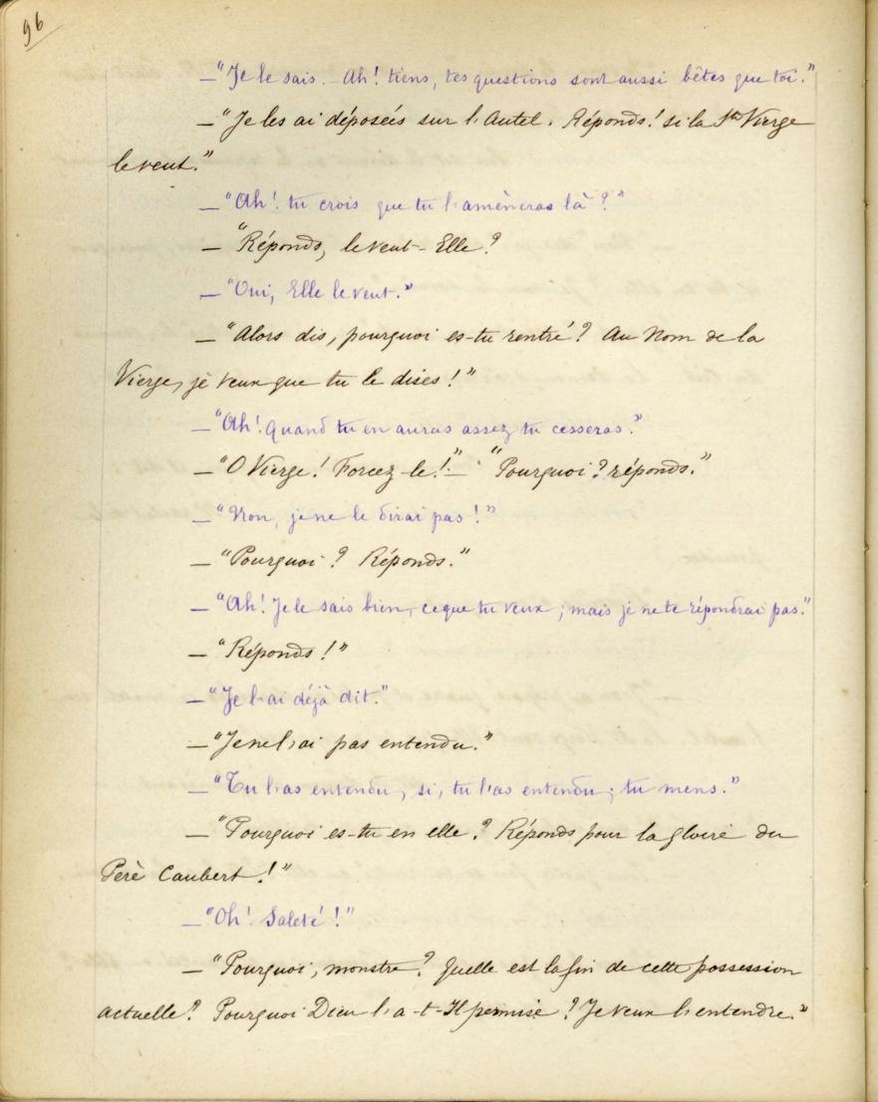 96
—"Je le sais. Ah! tiens, tes questions sont aussi bêtes que toi."
—"Je les ai déposées sur l'Autel. Réponds! si la Ste Vierge
le veut."
—"Ah! tu crois que tu l'amèneras là?"
—"Réponds, le veut-Elle?
—"Oui, Elle le veut."
—"Alors dis, pourquoi es-tu rentré? Au Nom de la
Vierge, je veux que tu le dises!"
—"Ah! Quand tu en auras assez tu cesseras."
—"O Vierge! Forcez-le!"— "Pourquoi? réponds."
—"Non, je ne le dirai pas!"
—"Pourquoi? Réponds."
—"Ah! Je le sais bien, ce que tu veux; mais je ne te répondrai pas."
—"Réponds!"
—"Je l'ai déjà dit."
—"Je ne l'ai pas entendu."
—"Tu l'as entendu, si, tu l'as entendu; tu mens."
—"Pourquoi es-tu en elle? Réponds pour la gloire du
Père Caubert!"
—"Oh! Saleté!"
—"Pourquoi, monstre? Quelle est la fin de cette possession
actuelle? Pourquoi Dieu l'a-t-Il permise? Je veux l'entendre."